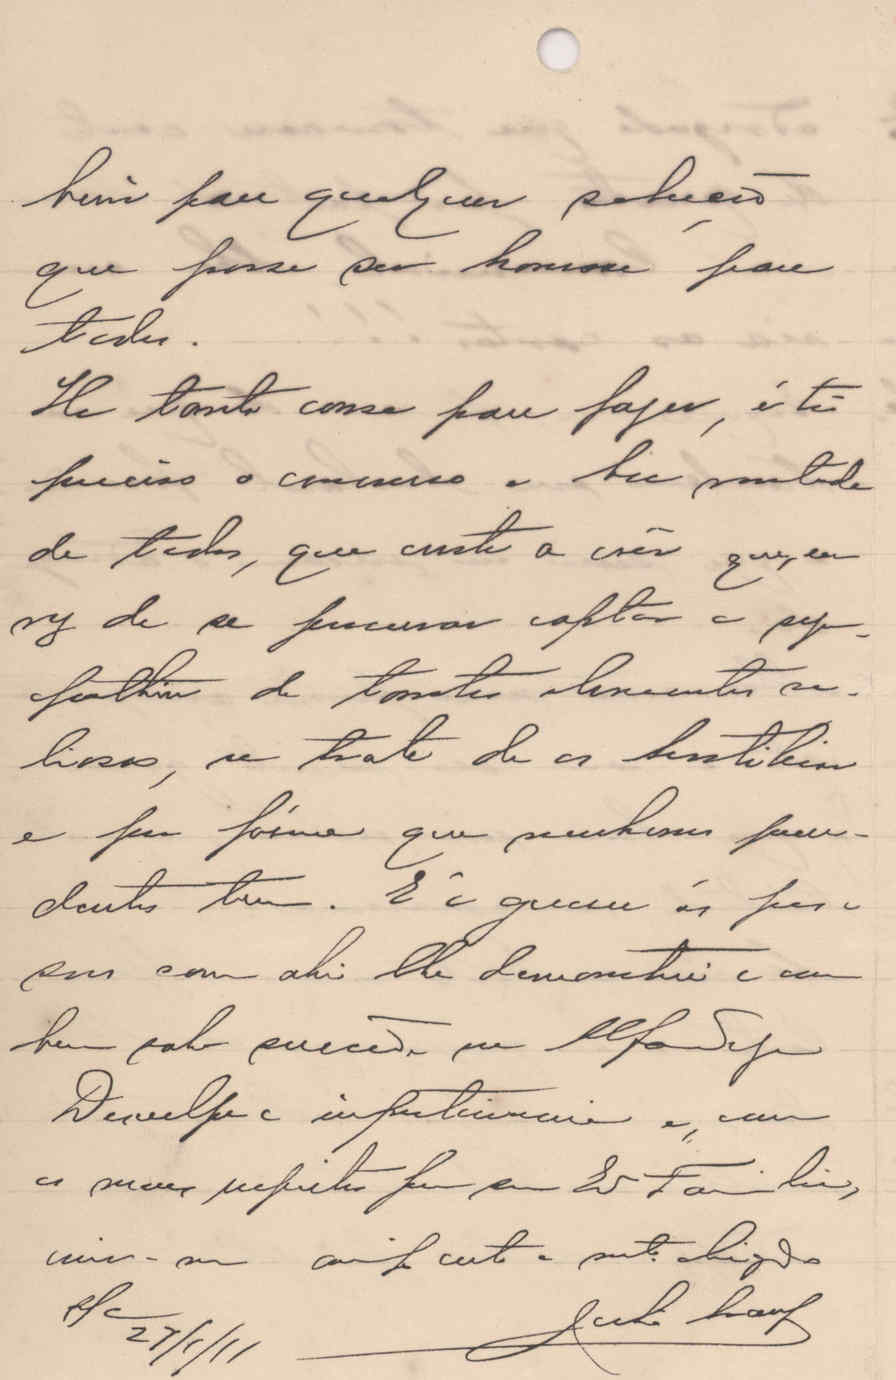 bem para qualquer solução
que possa ser honrosa para
todos.
Ha tanta cousa para fazer, é tão
preciso o concurso e boa vontade
de todos, que custa a crêr que, em
vez de se procurar captar a sym-
pathia de tantos elementos va-
liosos, se trate de os hostilisar
e por fórma que nenhuns prece-
dentes tem. É a guerra ás pes-
soas como ahi lhe demonstrei e como
bem sabe succede na Alfandega
Desculpe a impertinencia e, com
os meus respeitos para sua Ex Familia,
creia-me amigo certo e mto obrigdo
S/C
27/1/11